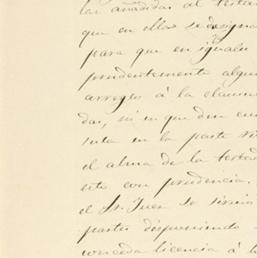 las añadidas al testa
que en ellos se designa
para que en iguales
prudentemente algun
arreglo á la clausu
das, ni en que den cu
suta en la parte
el alma de la testad
sito con prudencia,
el Sr. Juez se sirva
partes disponiendo
conceda licencia á